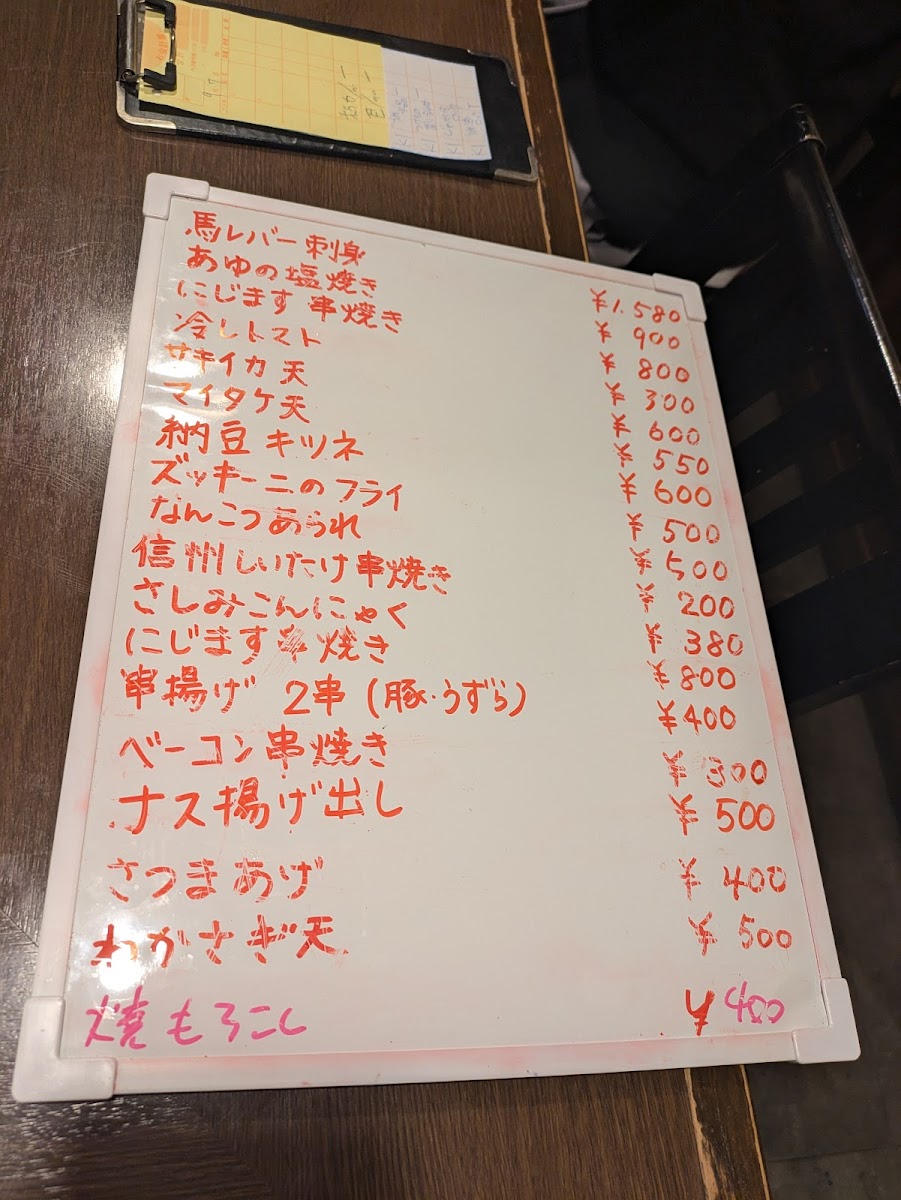 馬レバー刺身 ¥1.580
あゆの塩焼き ¥900
にじます串焼き ¥800
冷しトマト ¥300
サキイカ天 ¥600
マイタケ天 ¥550
納豆キツネ ¥600
ズッキーニのフライ ¥500
なんこつあられ ¥500
信州しいたけ串焼き ¥200
さしみこんにゃく ¥380
にじます串焼き ¥800
串揚げ 2串(豚・うずら) ¥400
ベーコン串焼き ¥300
ナス揚げ出し ¥500
さつまあげ ¥400
わかさぎ天 ¥500
焼もろこし ¥400